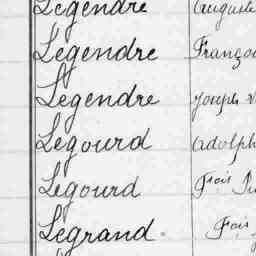 Legendre Auguste
Legendre Franço
Legendre Joseph
Legourd Adolph
Legourd Fois
Legrand Fois